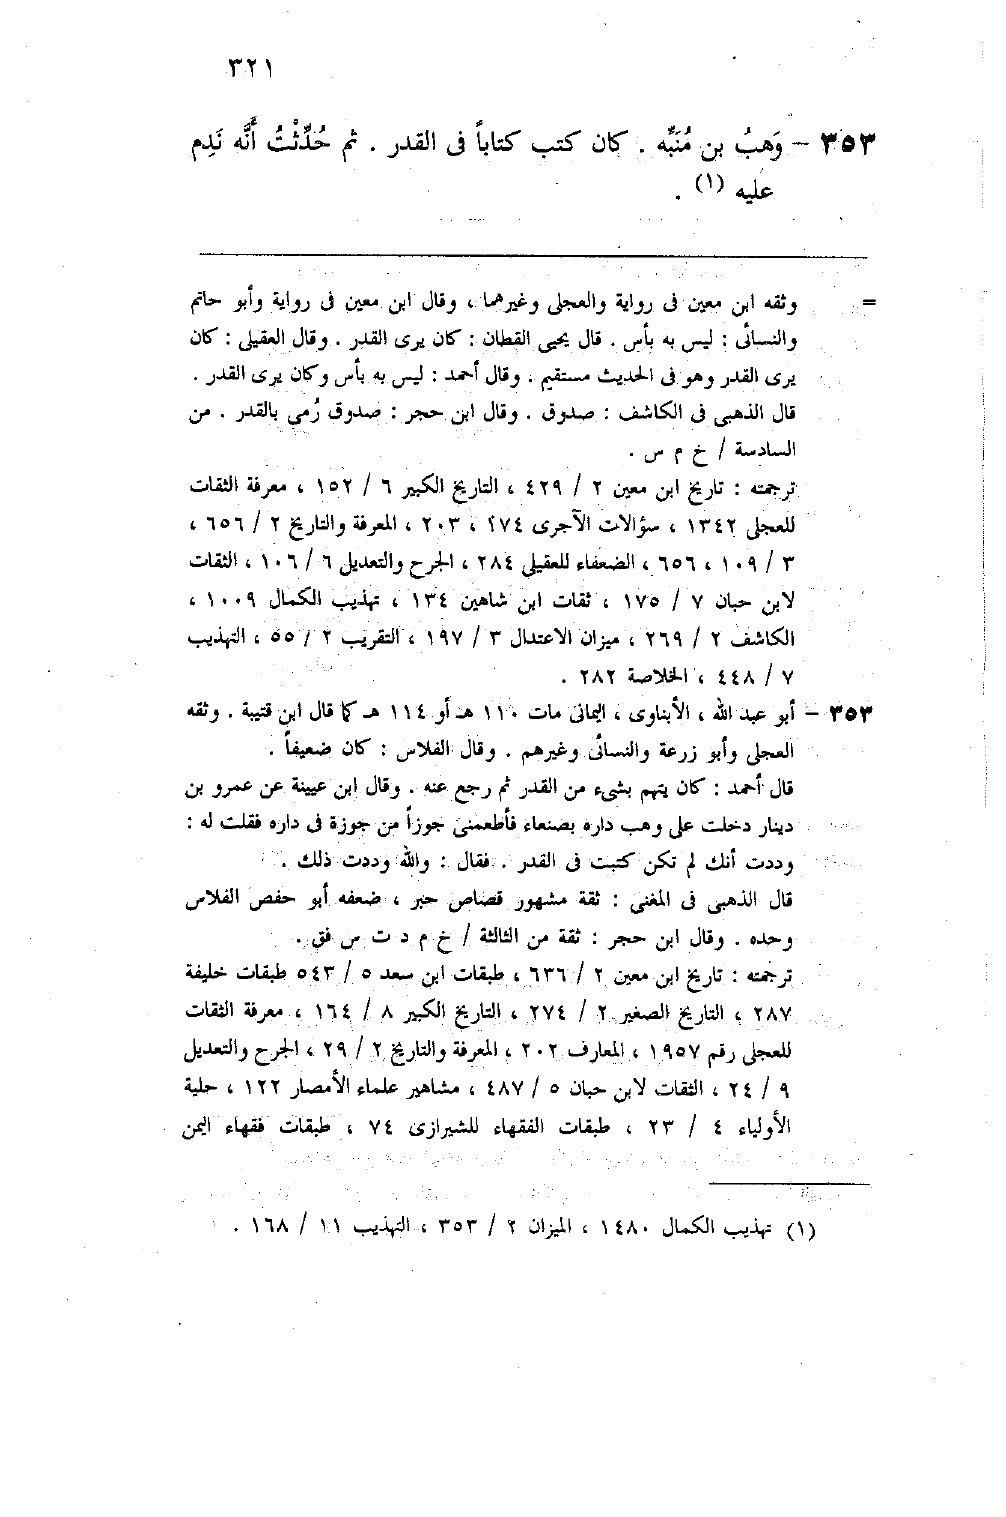 ٣٢١
٣٥٣ – وَهبُ بن مُنَبِّه . كان كتب كتاباً فى القدر . ثم حُدِّثْتُ أَنَّه نَدِم
عليه (١) .
= وثقه ابن معين فى رواية والعجلى وغيرهما ، وقال ابن معين فى رواية وأبو حاتم
والنسائى : ليس به بأس . قال يحيى القطان : كان يرى القدر . وقال العقيلى : كان
يرى القدر وهو فى الحديث مستقيم . وقال أحمد : ليس به بأس وكان يرى القدر .
قال الذهبى فى الكاشف : صدوق . وقال ابن حجر : صدوق رُمى بالقدر . من
السادسة / خ م س .
ترجمته : تاريخ ابن معين ٢ / ٤٢٩ ، التاريخ الكبير ٦ / ١٥٢ ، معرفة الثقات
للعجلى ١٣٤٢ ، سؤالات الآجرى ٢٧٤ ، ٢٠٣ ، المعرفة والتاريخ ٢ / ٦٥٦ ،
٣ / ١٠٩ ، ٦٥٦ ، الضعفاء للعقيلى ٢٨٤ ، الجرح والتعديل ٦ / ١٠٦ ، الثقات
لابن حبان ٧ / ١٧٥ ، ثقات ابن شاهين ١٣٤ ، تهذيب الكمال ١٠٠٩ ،
الكاشف ٢ / ٢٦٩ ، ميزان الاعتدال ٣ / ١٩٧ ، التقريب ٢ / ٥٥ ، التهذيب
٧ / ٤٤٨ ، الخلاصة ٢٨٢ .
٣٥٣ – أبو عبد الله ، الأبناوى ، اليمانى مات ١١٠ هـ أو ١١٤ هـ كما قال ابن قتيبة . وثقه
العجلى وأبو زرعة والنسائى وغيرهم . وقال الفلاس : كان ضعيفاً .
قال أحمد : كان يتهم بشىء من القدر ثم رجع عنه . وقال ابن عيينة عن عمرو بن
دينار دخلت على وهب داره بصنعاء فأطعمنى جوزاً من جوزة فى داره فقلت له :
وددت أنك لم تكن كتبت فى القدر . فقال : والله وددت ذلك .
قال الذهبى فى المغنى : ثقة مشهور قصاص حبر ، ضعفه أبو حفص الفلاس
وحده . وقال ابن حجر : ثقة من الثالثة / خ م د ت س فق .
ترجمته : تاريخ ابن معين ٢ / ٦٣٦ ، طبقات ابن سعد ٥ / ٥٤٣ طبقات خليفة
٢٨٧ ، التاريخ الصغير ٢ / ٢٧٤ ، التاريخ الكبير ٨ / ١٦٤ ، معرفة الثقات
للعجلى رقم ١٩٥٧ ، المعارف ٢٠٢ ، المعرفة والتاريخ ٢ / ٢٩ ، الجرح والتعديل
٩ / ٢٤ ، الثقات لابن حبان ٥ / ٤٨٧ ، مشاهير علماء الأمصار ١٢٢ ، حلية
الأولياء ٤ / ٢٣ ، طبقات الفقهاء للشيرازى ٧٤ ، طبقات فقهاء اليمن
(١) تهذيب الكمال ١٤٨٠ ، الميزان ٢ / ٣٥٣ ، التهذيب ١١ / ١٦٨ .